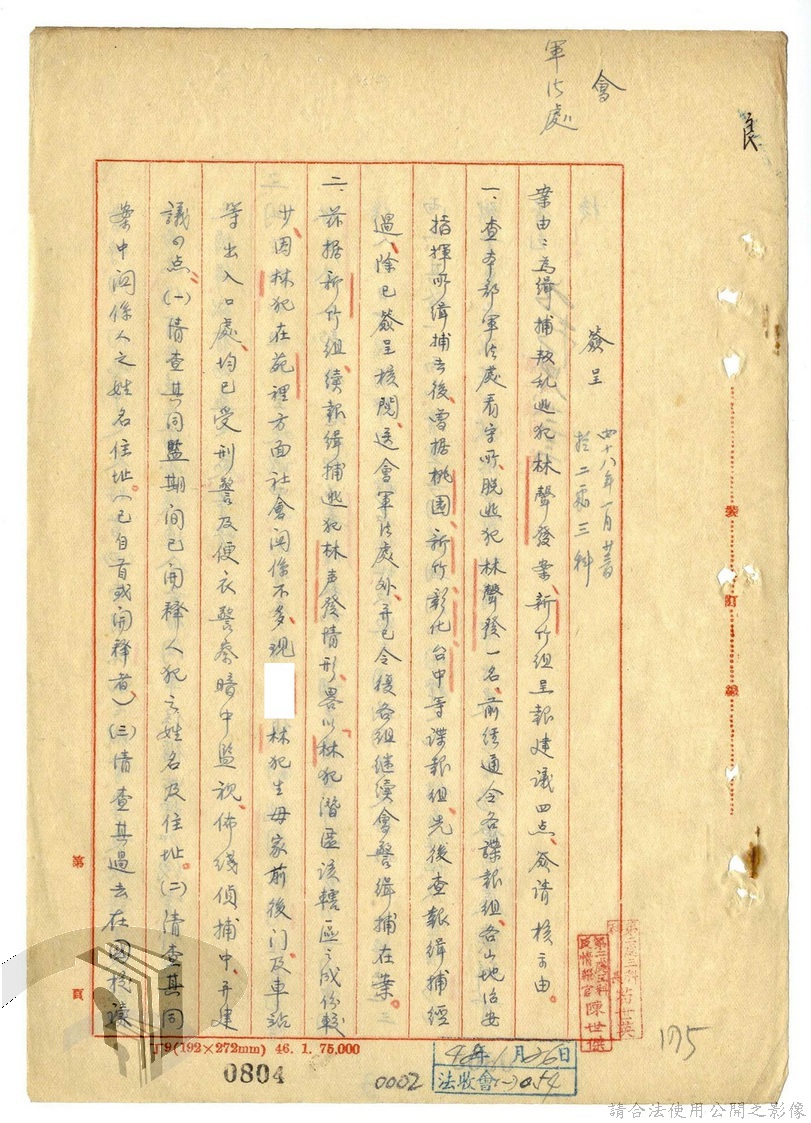 會
軍法處
簽呈
四十八年一月廿
於二處三科
案由：為緝捕叛乱逃犯林聲發案、新竹組呈報建議四点、簽請 核示由。
一、查本部軍法處看守所、脫逃犯林聲發一名、前經通令各諜報組、各山地治安
指揮所緝捕去後、曾据桃園、新竹、彰化、台中等諜報組、先後查報緝捕經
過、除已簽呈核閱、送會軍法處外、并已令復各組継續會警緝捕在案。
二、茲据新竹組、續報緝捕逃犯林声發情形、畧以「林犯潛匿該轄區之成份較
少、因林犯在苑裡方面社會関係不多、現 林犯生母家前後门、及車站
等出入口處、均已受刑警及便衣警察暗中監視、佈綫偵捕中、并建
議四点：(一)請查其同監期间已開釋人犯之姓名及住址。(二)請查其同
案中関係人之姓名住址。(已自首或開釋者)(三)請查其過去在國校讀
第 頁
J 9(192×272mm) 46. 1. 75,000
0804
0002
48年1月26日
法收會(一)054
第二處三科
反情報官 陳世傑
175
裝訂線
請合法使用公開之影像